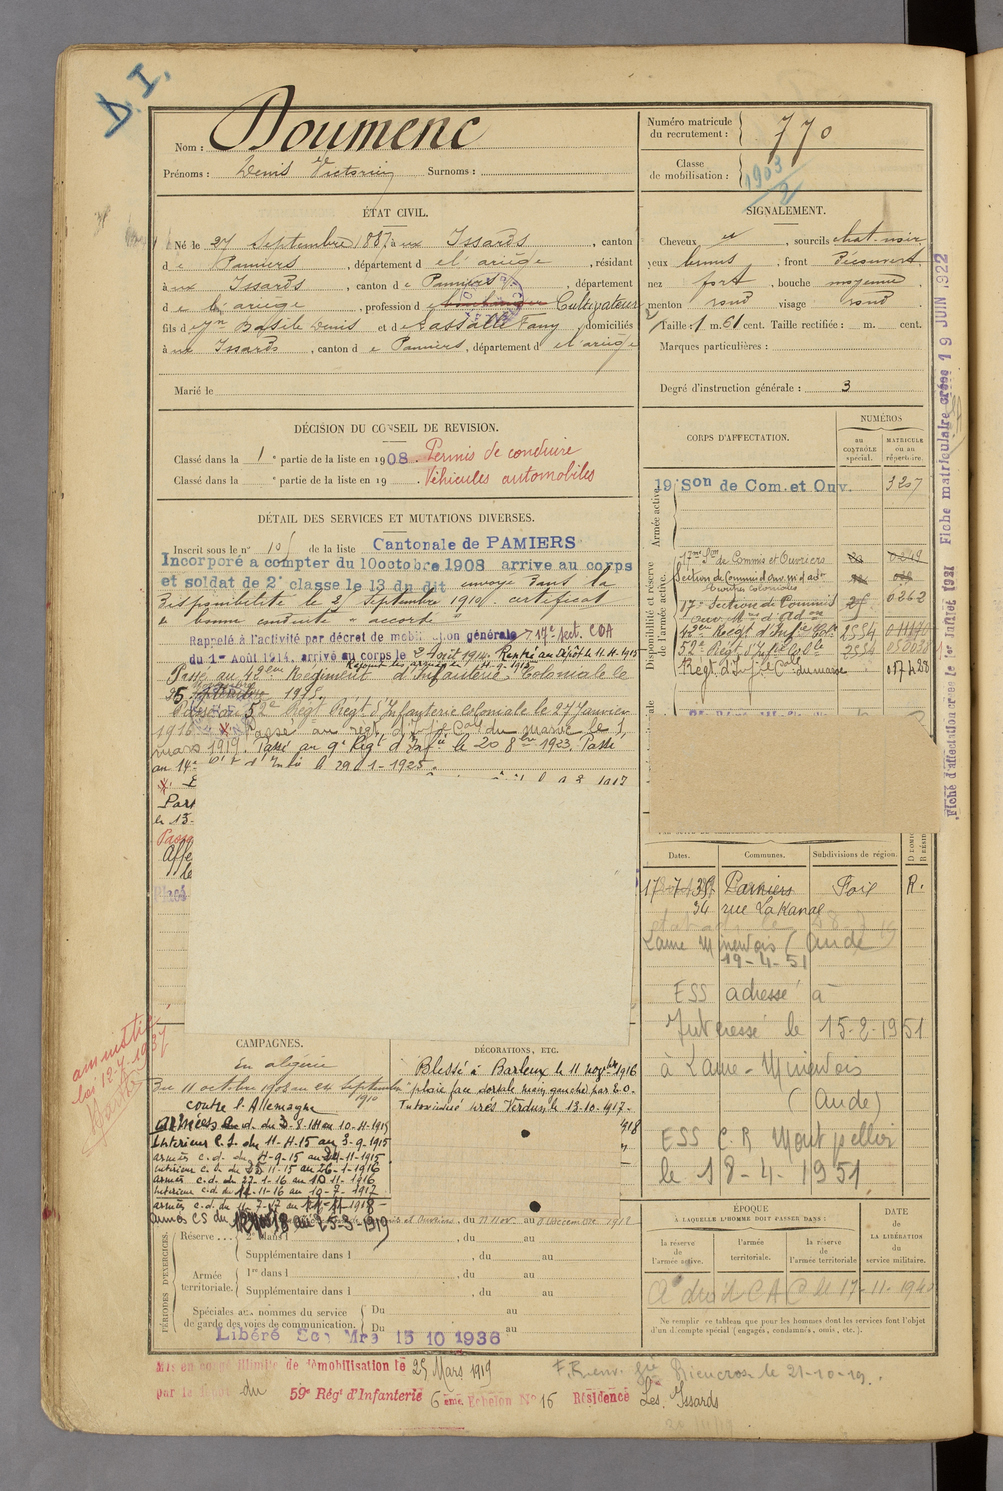 D.I.
Nom : Doumenc
Prénoms : Denis Victorin Surnoms :
Numéro matricule du recrutement : 770
Classe de mobilisation : 1903/2
ÉTAT CIVIL.
Né le 27 septembre 1887 à ux Issards , canton
d e Pamiers , département d e l'ariège , résidant
à ux Issards , canton d e Pamiers , département
d e l'ariège , profession d e Cultivateur
fils d e Jn Basile Denis et d e Lassalle Fany , domiciliés
à ux Issards , canton d e Pamiers , département d e l'ariège
Marié le
SIGNALEMENT.
Cheveux et , sourcils chat-noir
yeux bruns , front Découvert
nez fort , bouche moyenne ,
menton rond visage rond
Taille : 1 m. 61 cent. Taille rectifiée : m. cent.
Marques particulières :
Degré d'instruction générale : 3
DÉCISION DU CONSEIL DE REVISION.
Classé dans la 1e partie de la liste en 1908. Permis de conduire
Classé dans la e partie de la liste en 19 . Véhicules automobiles
DÉTAIL DES SERVICES ET MUTATIONS DIVERSES.
Inscrit sous le n° de la liste Cantonale de PAMIERS
Incorporé à compter du 10 octobre 1908 arrivé au corps
et soldat de 2e classe le 13 du dit envoyé dans la
disponibilité le 25 septembre 1910 certificat
de bonne conduite "accordé"
Rappelé à l'activité par décret de mobilisation générale 17e Sect. COA
du 1er Août 1914, arrivé au corps le 2 Août 1914. Rentré au Dépôt le 11-4-1915
Passé au 42ème Régiment d'Infanterie Coloniale le
1915.
Passé au 52e Régt d'Infanterie Coloniale le 27 Janvier
1916. Passé au régt d'Inf.ie Cole du maroc le 1
mars 1919. Passé au 9e Régt d'Infie le 20 8bre 1923. Passé
au 14e Rt d'Infie le 29-1-1925.
CORPS D'AFFECTATION.
NUMÉROS
au CONTRÔLE spécial.
MATRICULE ou au répertoire.
Armée active.
19e Son de Com. et Ouv. 3207
Disponibilité et réserve de l'armée active.
17me Son de Commis et Ouvriers
Section de Commis d'ouv. m. d'adon
17e Section de Commis 0262
ouv. Mres d'Adon
42ème Régt d'Infie Cole 2554
52e Régt d'Infie Colle 2554
Régt d'Inf.ie Cole du maroc 017428
Fiche matriculaire créée 19 JUIN 1922
Fiche d'affectation créée le 1er Juillet 1921
Dates. Communes. Subdivisions de région.
17-7-39 Pamiers Foix R.
34 rue Lakanal
Laure Minervois (Aude)
19-4-51
ESS adressé à
Intéressé le 15-2-1951
à Laure-Minervois
(Aude)
ESS C.R Montpellier
le 18-4-1951
amnistie
loi 12-7-1937
CAMPAGNES.
En algérie
Du 11 octobre 1908 au 24 septembre 1910
contre l'Allemagne
Armées c.d. du 3-8-14 au 10-4-1915
Intérieur C.S. du 11-4-15 au 3-9-1915
armées c.d. du 4-9-15 au 24-11-1915
intérieur c.s. du 25-11-15 au 26-1-1916
armées c.d. du 27-1-16 au 10-11-1916
Intérieur c.d. du 11-11-16 au 10-7-1917
armées c.d. du 11-7-17 au 11-11-1918
armées CS du 12 nov 18 au 25-3-1919
DÉCORATIONS, ETC.
Blessé à Barleux le 11 novbre 1916
"plaie face dorsale main gauche par E.O.
Intoxiqué près Verdun le 13-10-1917-
PÉRIODES D'EXERCICES.
Réserve 2e dans l , du au
Supplémentaire dans l , du au
Armée territoriale. 1re dans l , du au
Supplémentaire dans l , du au
Spéciales aux hommes du service de garde des voies de communication. Du au
Du au
Libéré Son Mre 15 10 1936
ÉPOQUE
À LAQUELLE L'HOMME DOIT PASSER DANS :
la réserve de l'armée active.
l'armée territoriale.
la réserve de l'armée territoriale
DATE de LA LIBÉRATION du service militaire.
A droit CA C le 17-11-1940
Ne remplir ce tableau que pour les hommes dont les services font l'objet
d'un décompte spécial (engagés, condamnés, omis, etc.).
Mis en congé illimité de démobilisation le 25 Mars 1919
par le du 59e Régt d'Infanterie 6ème Echelon N° 16 Résidence Les Issards
Rieucros le 21-10-19.